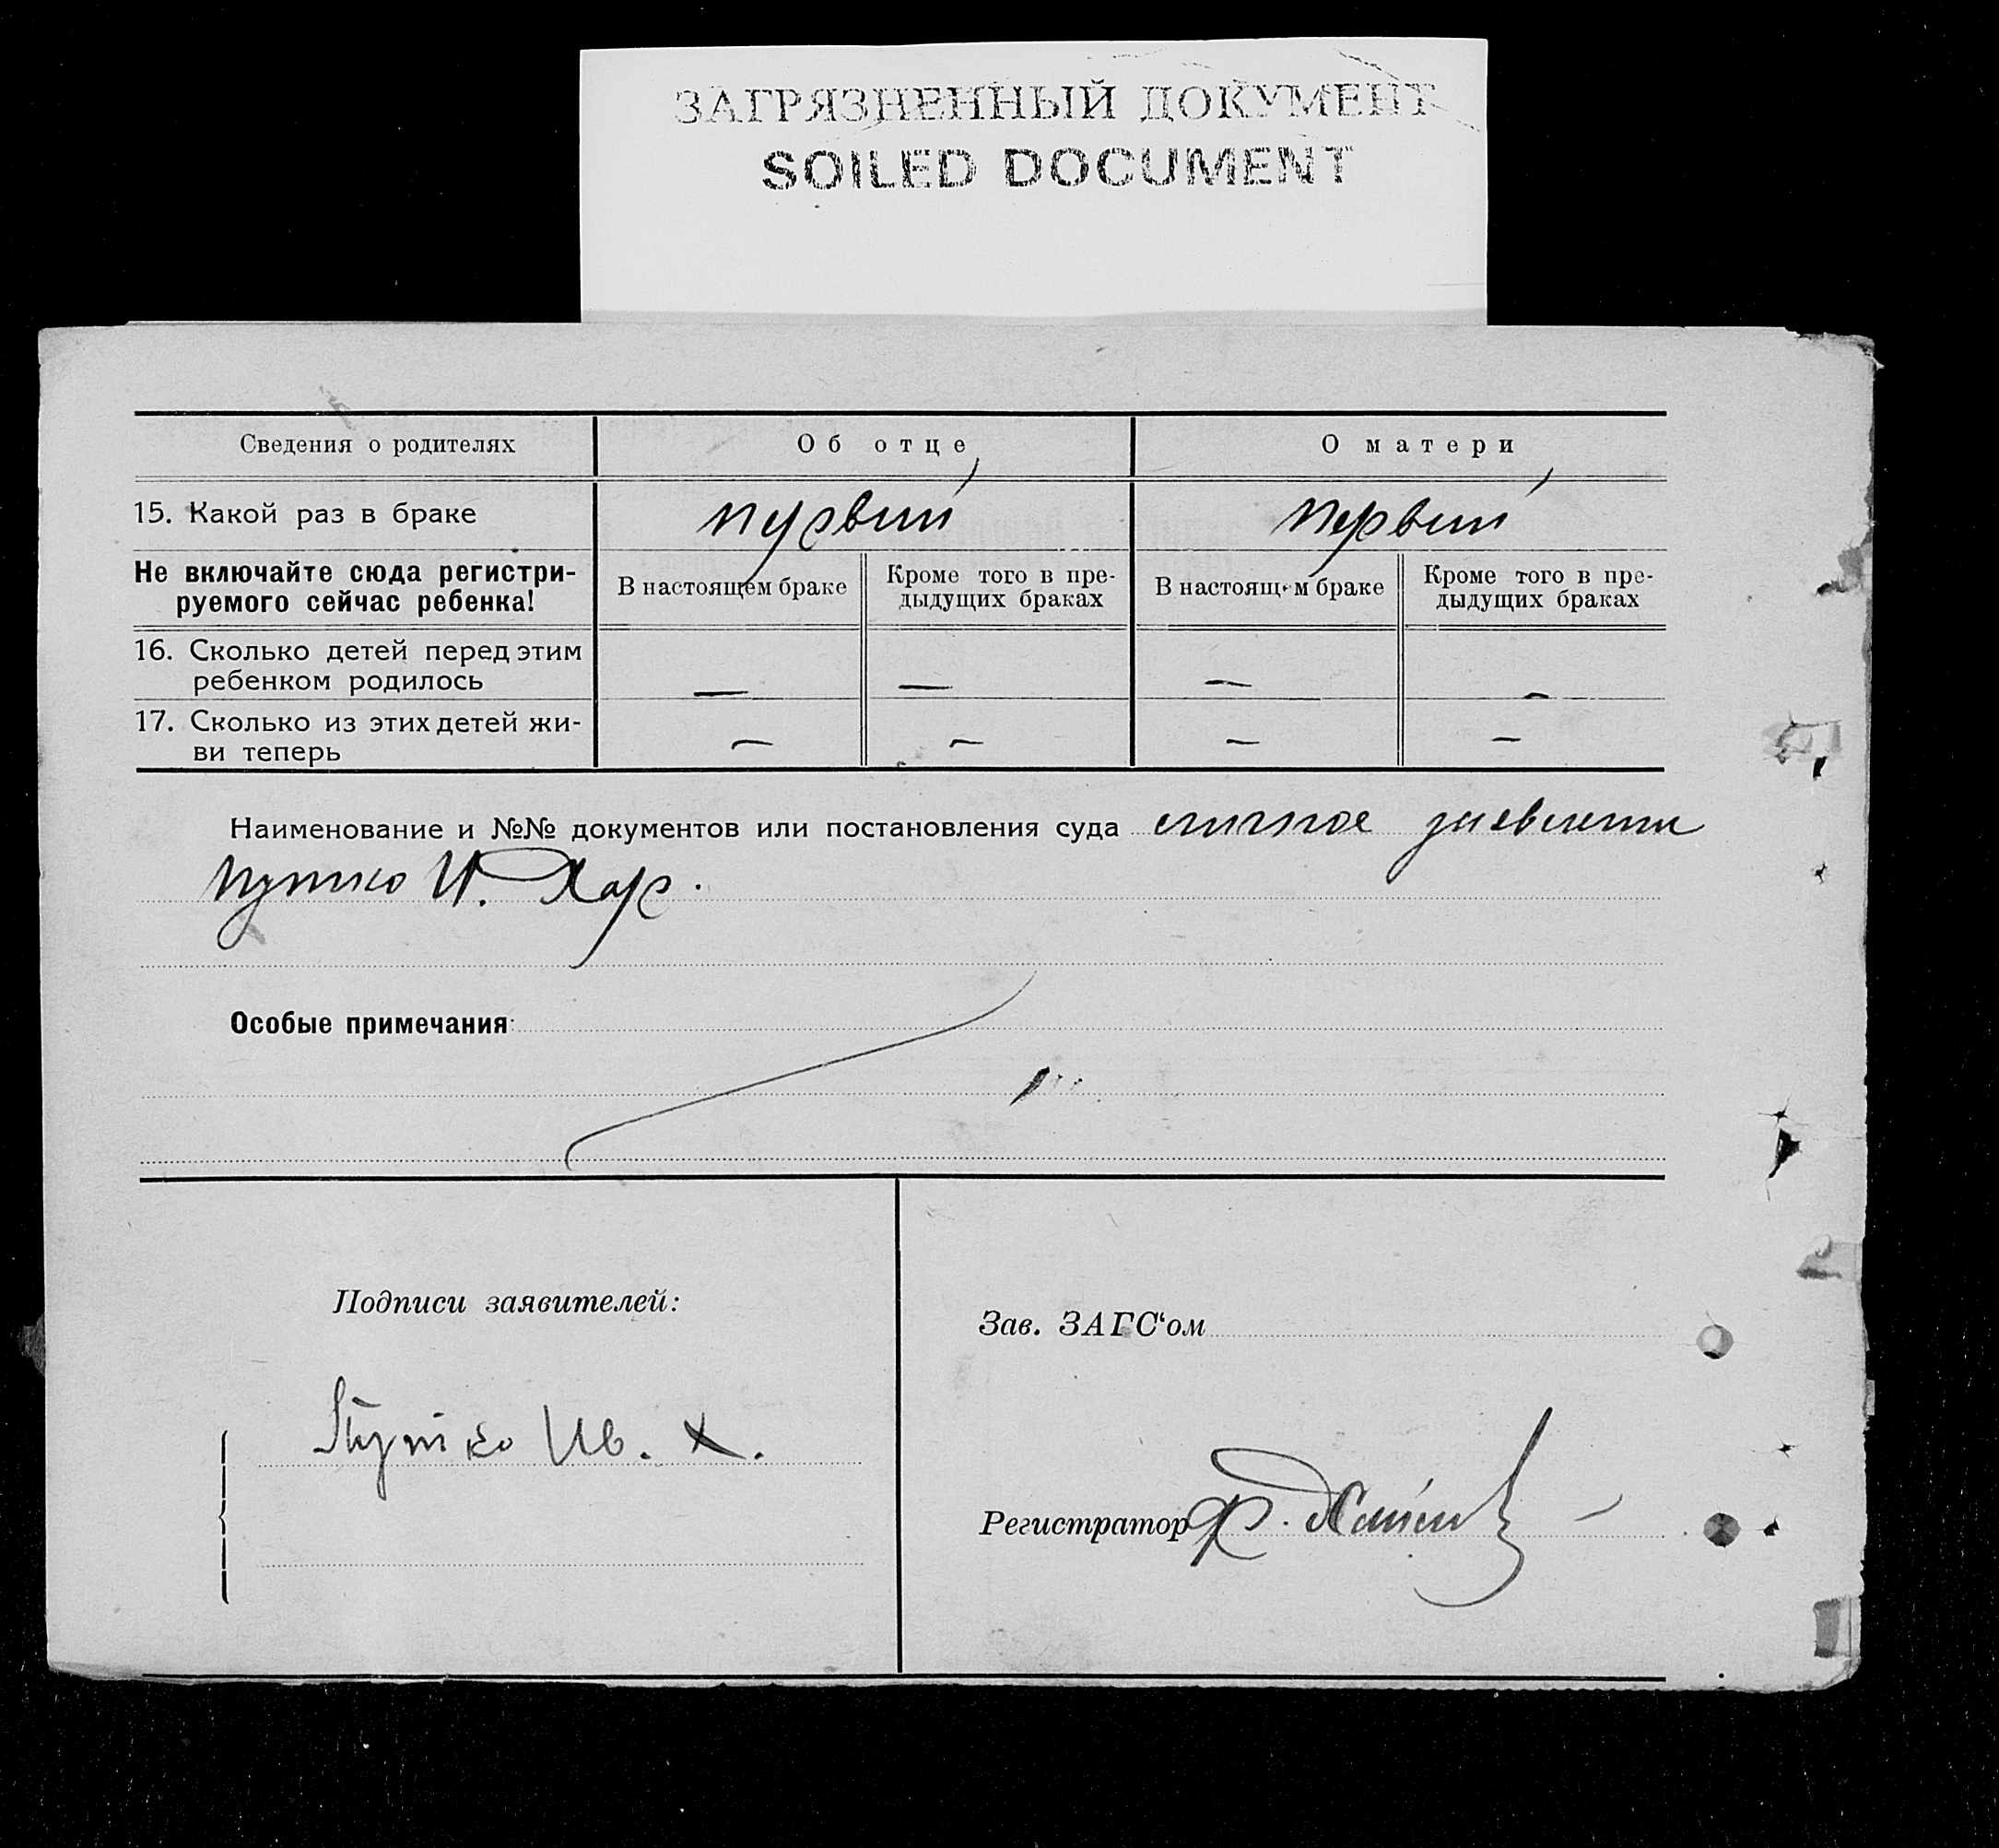 ЗАГРЯЗНЕННЫЙ ДОКУМЕНТ
SOILED DOCUMENT
Сведения о родителях Об отце О матери
15. Какой раз в браке первий первий
Не включайте сюда регистри-
руемого сейчас ребенка!
В настоящем браке
Кроме того в пре-
дыдущих браках
В настоящем браке
Кроме того в пре-
дыдущих браках
16. Сколько детей перед этим
ребенком родилось — — — —
17. Сколько из этих детей жи-
ви теперь — — — —
Наименование и №№ документов или постановления суда личное
Путко И. Хар.
Особые примечания:
Подписи заявителей:
Путко Ив. Х.
Зав. ЗАГС‘ом
Регистратор